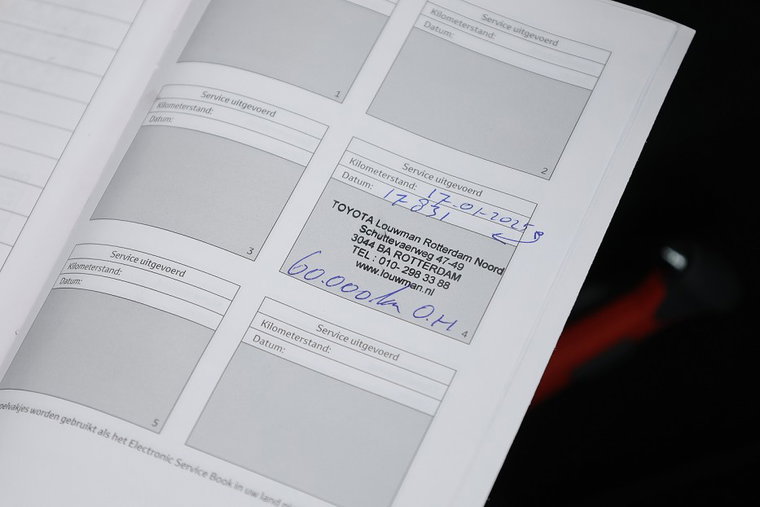 1
Service uitgevoerd
Kilometerstand:
Datum:
2
Service uitgevoerd
Kilometerstand:
Datum:
3
Service uitgevoerd
Kilometerstand: 17-01-2025
Datum: 17831
TOYOTA Louwman Rotterdam Noord
Schuttevaerweg 47-49
3044 BA ROTTERDAM
TEL : 010- 298 33 88
www.louwman.nl
60.000 km O.H
4
Service uitgevoerd
Kilometerstand:
Datum:
5
Service uitgevoerd
Kilometerstand:
Datum:
worden gebruikt als het Electronic Service Book in uw land